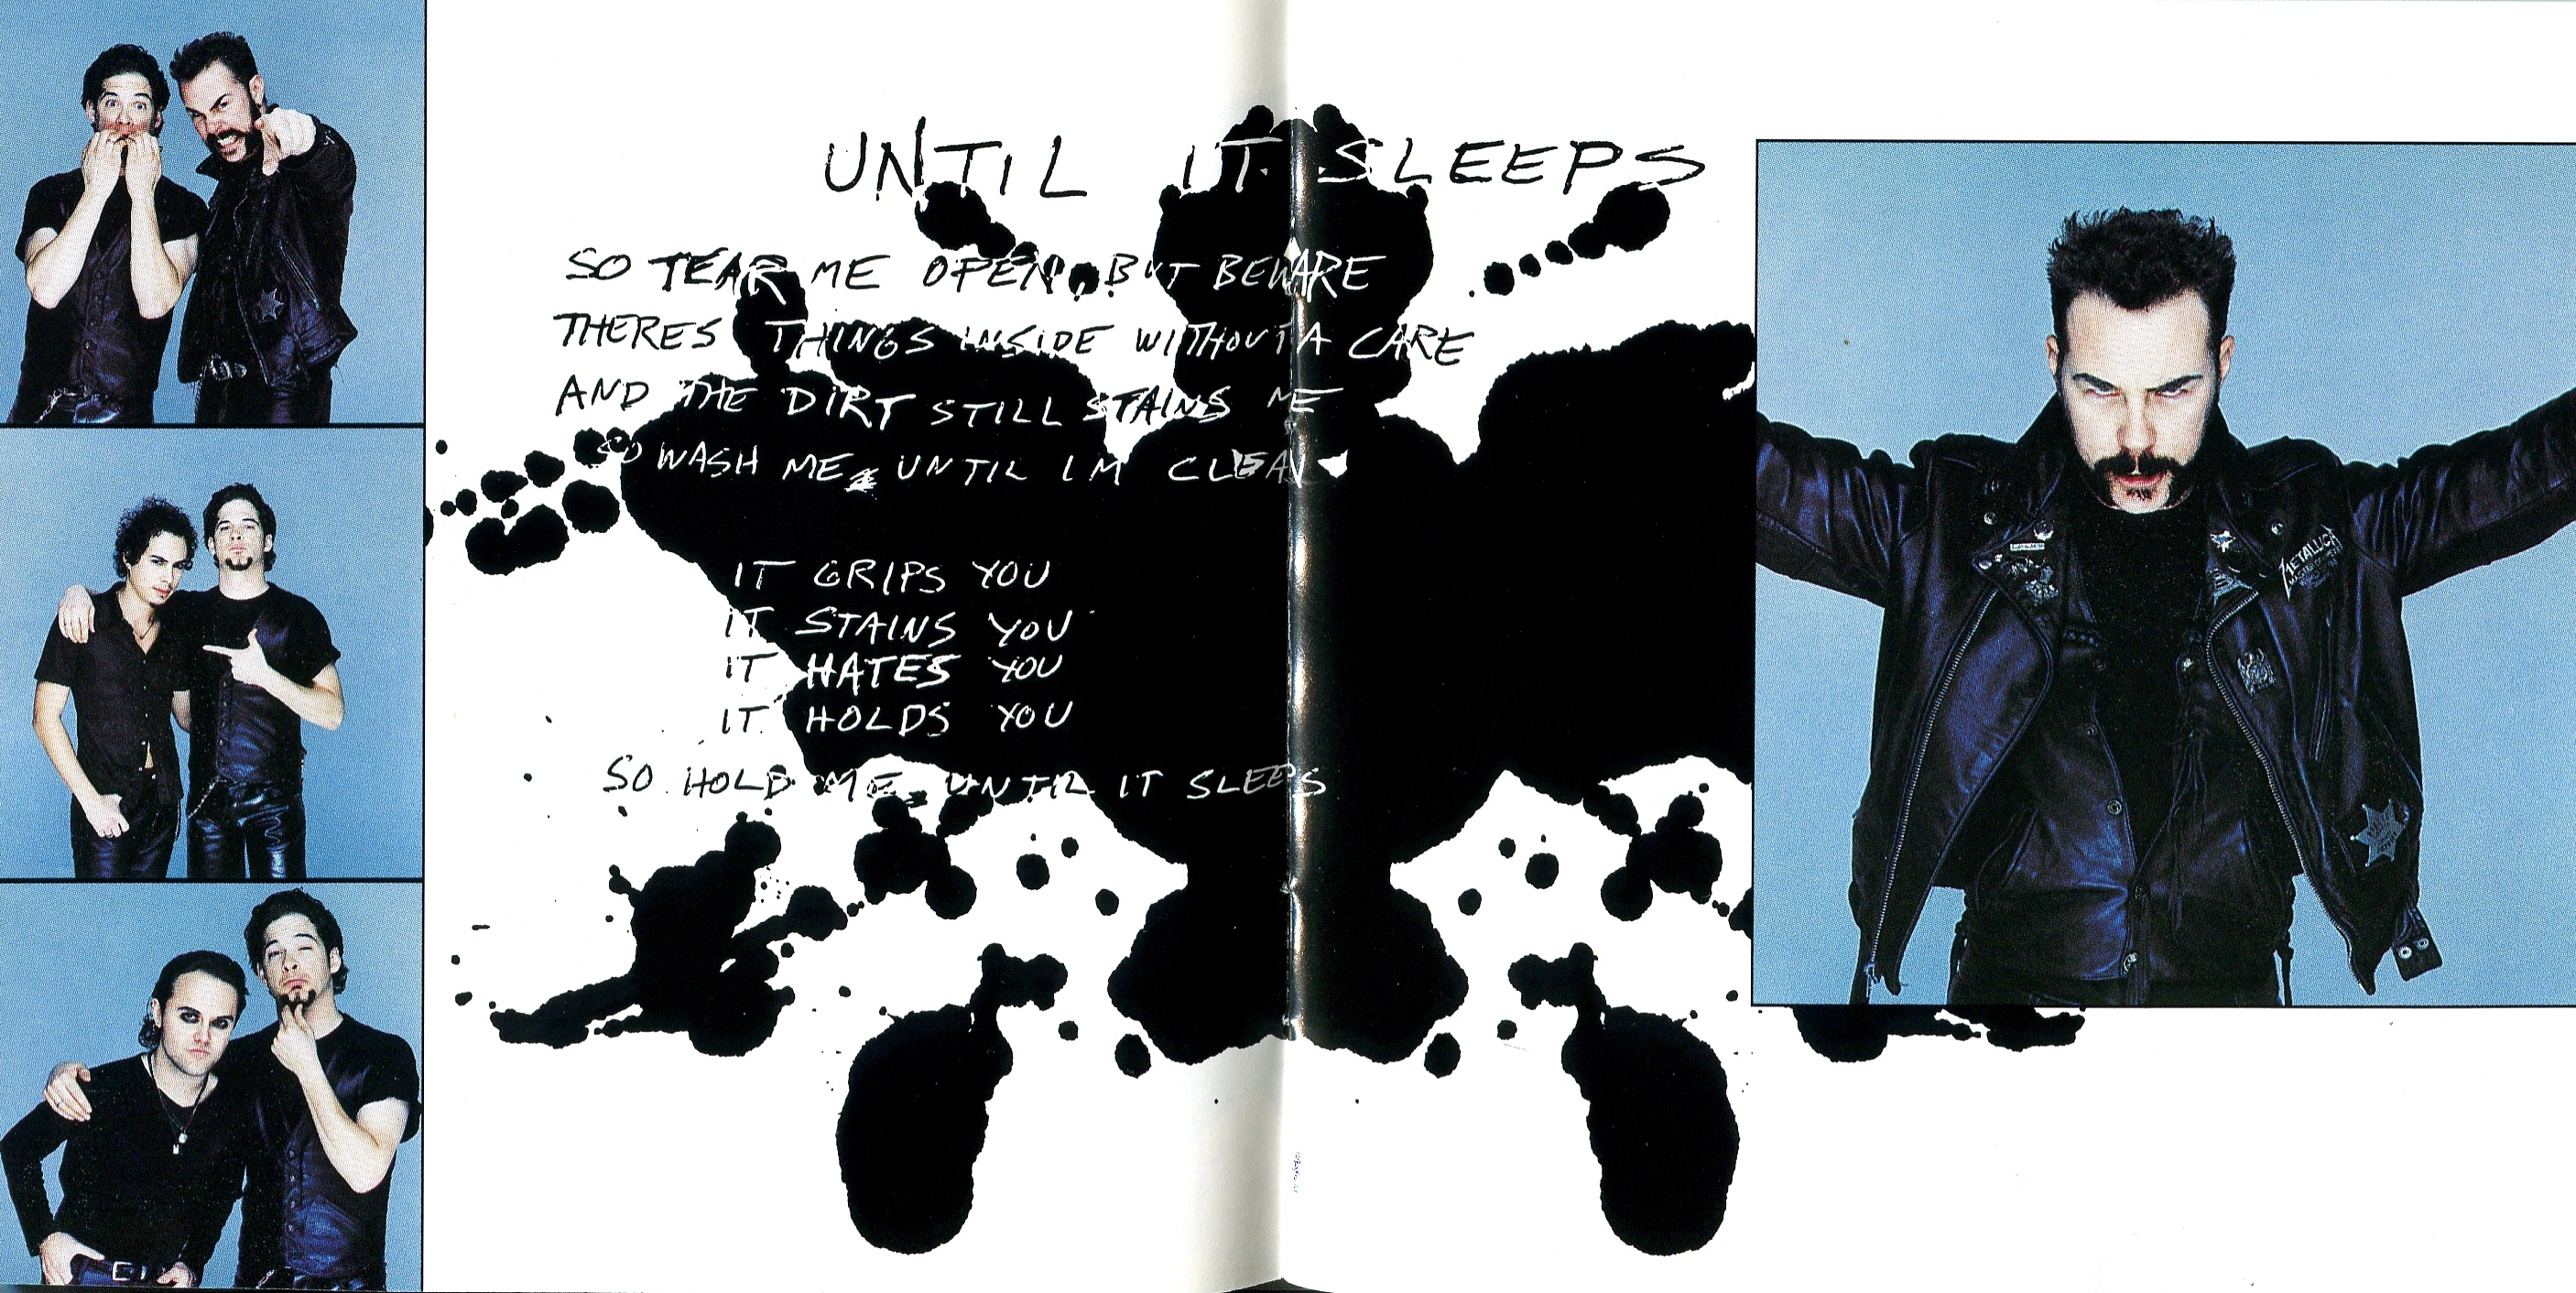 UNTIL IT SLEEPS
SO TEAR ME OPEN, BUT BEWARE
THERES THINGS INSIDE WITHOUT A CARE
AND THE DIRT STILL STAINS ME
SO WASH ME, UNTIL IM CLEAN
IT GRIPS YOU
IT STAINS YOU
IT HATES YOU
IT HOLDS YOU
SO HOLD ME, UNTIL IT SLEEPS
METALLICA